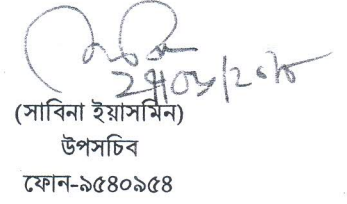 (সাবিনা ইয়াসমিন)
উপসচিব
ফোন-৯৫৪০৯৫৪